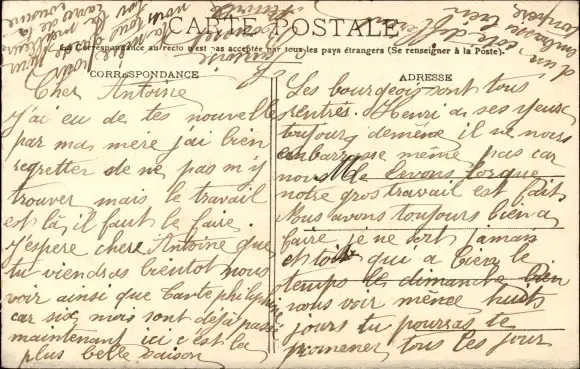 CARTE POSTALE
La Correspondance au recto n'est pas acceptée par tous les pays étrangers (Se renseigner à la Poste).
CORRESPONDANCE
Cher Antoine
J'ai eu de tes nouvelle
par ma mère j'ai bien
regretter de ne pas m'y
trouver mais le travail
est là, il faut le faire.
J'espere chere Antoine que
tu viendras bientot nous
voir ainsi que tante
car six mois sont déjà passé
maintenant ici c'est la
plus belle saison
ADRESSE
Les bourgeois sont tous
rentrés. Henri a ses yeux
toujours de meme il ne nous
embarrasse même pas car
nous le levons lorque
notre gros travail est fait.
Nous avons toujours bien a
faire je ne sort jamais
qui a bien le
temps le dimanche
nous voir même huits
jours tu pourras te
promener tous les jour